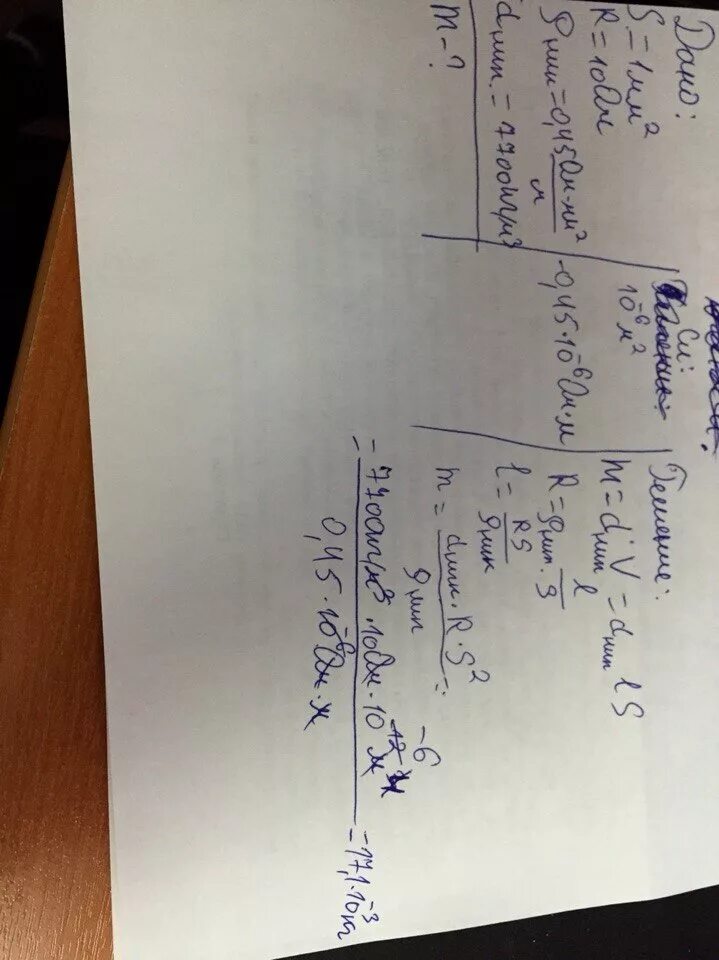 Дано:
S = 1мм²
R = 10Ом
ρник = 0,45 Ом·мм²/м
dник. = 7700кг/м³
m - ?
Си:
10⁻⁶м²
-0,45·10⁻⁶Ом·м
Решение:
m = dник·V = dник l S
R = ρник · l/S
l = RS/ρник
m = dник·R·S²/ρник =
= 7700кг/м³·10Ом·10⁻⁶/0,45·10⁻⁶Ом·м = 17,1·10⁻³кг